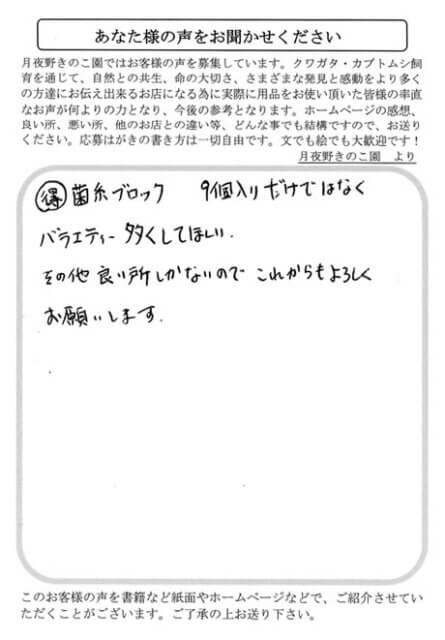 あなた様の声をお聞かせください
月夜野きのこ園ではお客様の声を募集しています。クワガタ・カブトムシ飼
育を通じて、自然との共生、命の大切さ、さまざまな発見と感動をより多く
の方達にお伝え出来るお店になる為に実際に用品をお使い頂いた皆様の率直
なお声が何よりの力となり、今後の参考となります。ホームページの感想、
良い所、悪い所、他のお店との違い等、どんな事でも結構ですので、お送り
ください。応募はがきの書き方は一切自由です。文でも絵でも大歓迎です！
月夜野きのこ園 より
㊝菌糸ブロック 9個入りだけではなく
バラエティー多くしてほしい.
その他 良い所しかないので これからもよろしく
お願いします.
このお客様の声を書籍など紙面やホームページなどで、ご紹介させてい
ただくことがございます。ご了承の上お送り下さい。